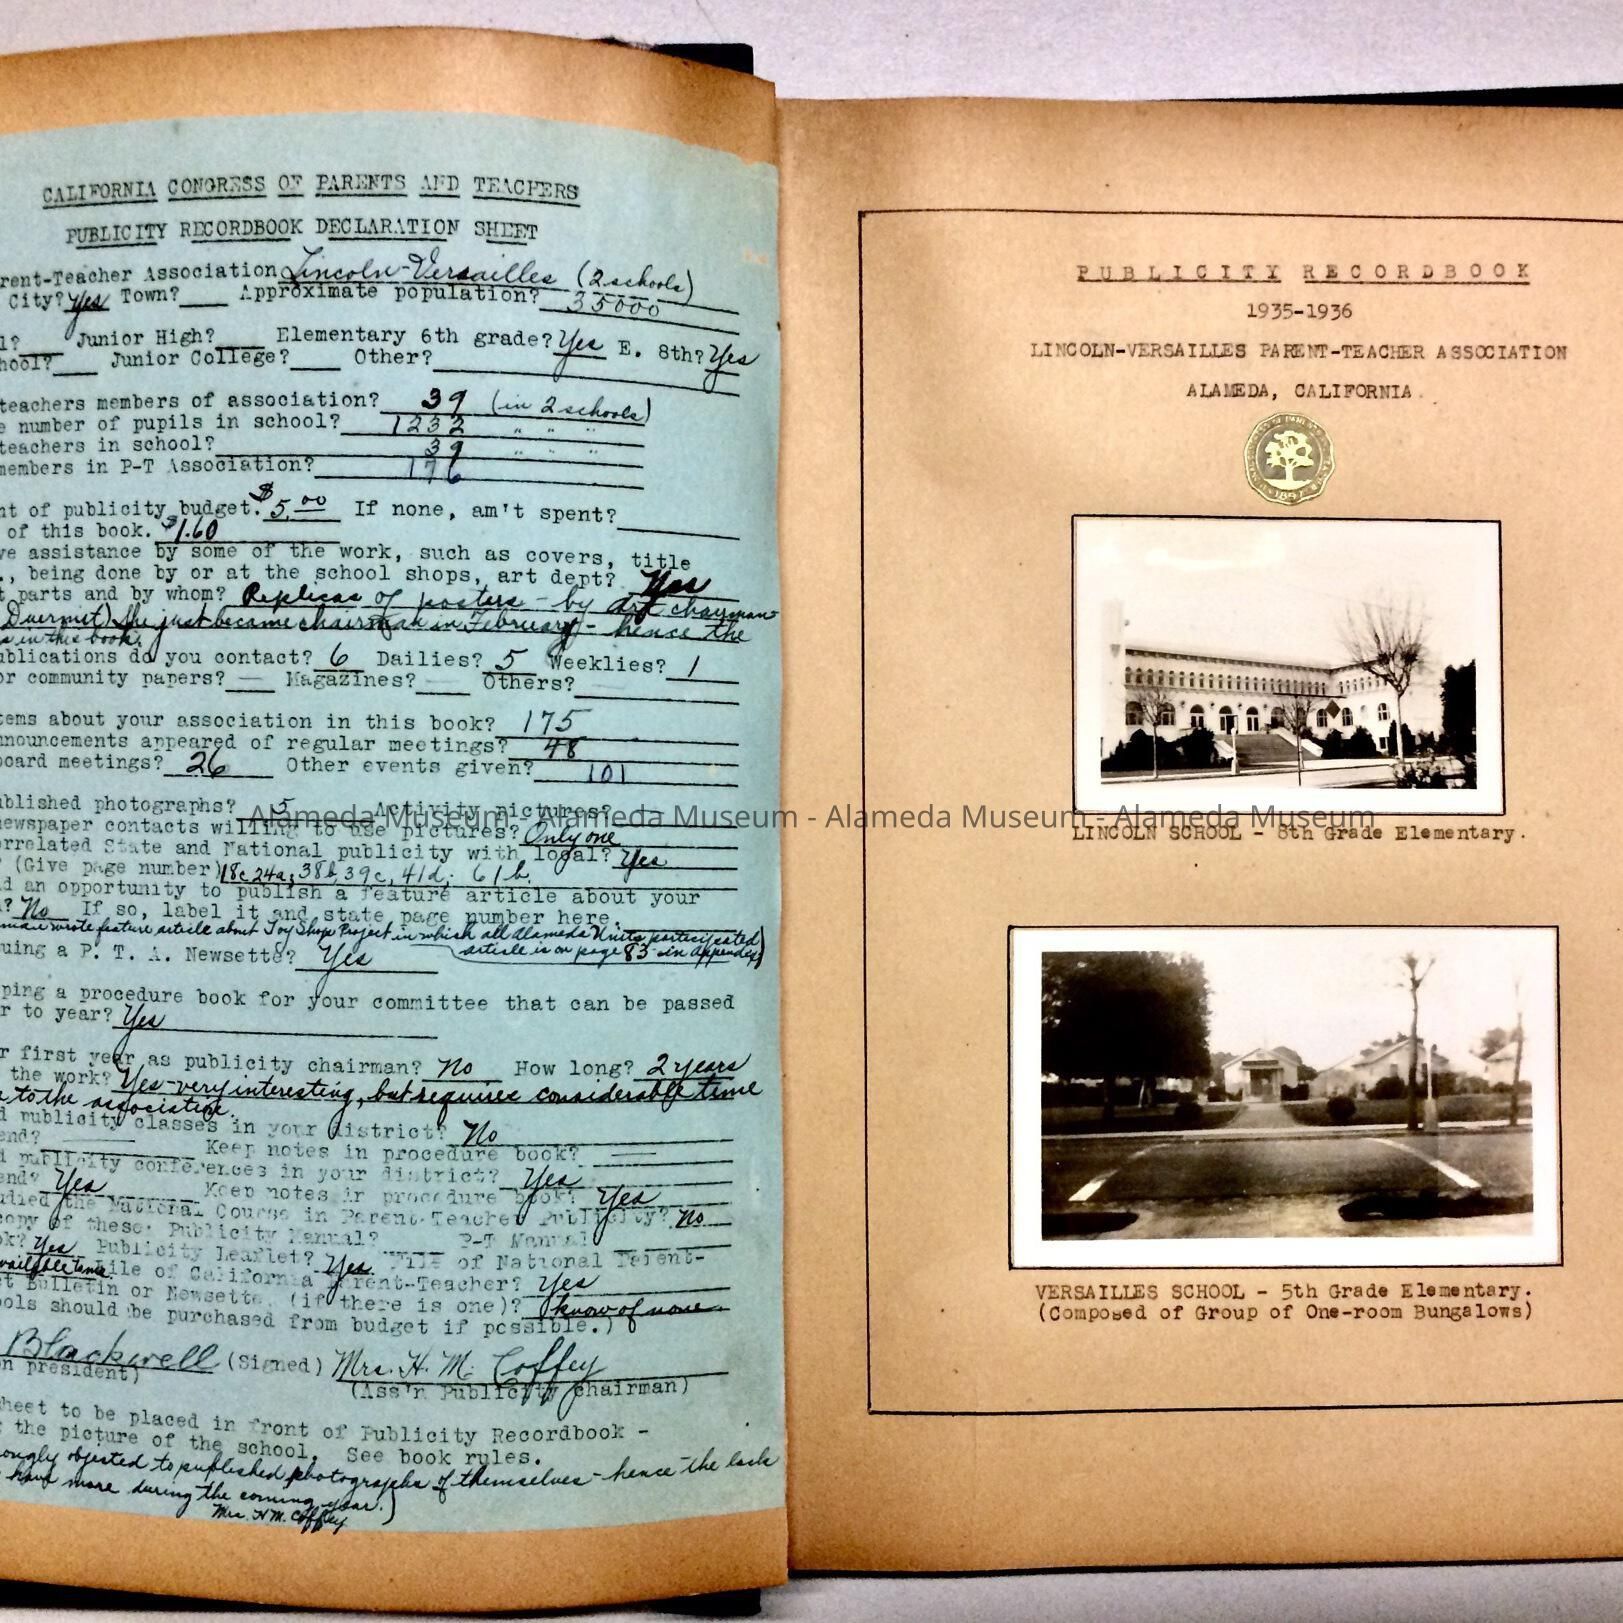 CALIFORNIA CONGRESS OF PARENTS AND TEACHERS
PUBLICITY RECORDBOOK DECLARATION SHEET
rent-Teacher Association Lincoln-Versailles (2 schools)
City? Yes Town? Approximate population? 35000
l? Junior High? Elementary 6th grade? Yes E. 8th? Yes
hool? Junior College? Other?
teachers members of association? 39 (in 2 schools)
e number of pupils in school? 1232 " " "
teachers in school? 39 " " "
members in P-T Association? 176
nt of publicity budget. $5.00 If none, am't spent?
of this book. $1.60
ve assistance by some of the work, such as covers, title
., being done by or at the school shops, art dept? Yes
t parts and by whom? Replicas of posters - by art chairman
Duermit) She just became chairman in February - hence the
s in this book.
ublications do you contact? 6 Dailies? 5 Weeklies? 1
or community papers? — Magazines? Others?
tems about your association in this book? 175
nnouncements appeared of regular meetings? 48
board meetings? 26 Other events given? 101
ublished photographs? 5 Activity pictures?
newspaper contacts willing to use pictures? Only one
orrelated State and National publicity with local? Yes
? (Give page number) 18c 24a; 38b, 39c, 41d; 61b.
d an opportunity to publish a feature article about your
? No If so, label it and state page number here.
man wrote feature article about Toy Shop Project in which all Alameda Units participated
article is on page 83 in appendix)
uing a P. T. A. Newsette? Yes
ping a procedure book for your committee that can be passed
r to year? Yes
r first year as publicity chairman? No How long? 2 years
the work? Yes - very interesting, but requires considerable time
e to the association.
d publicity classes in your district? No
end? Keep notes in procedure book?
d publicity conferences in your district? Yes
end? Yes Keep notes in procedure book? Yes
udied the National Course in Parent-Teacher Publicity? No
copy of these: Publicity Manual? P-T Manual
ok? Yes Publicity Leaflet? Yes File of National Parent-
ile of California Parent-Teacher? Yes
t Bulletin or Newsette, (if there is one)? know of none
ools should be purchased from budget if possible.)
Blackwell (Signed) Mrs. H. M. Coffey
on president) (Ass'n Publicity Chairman)
heet to be placed in front of Publicity Recordbook -
g the picture of the school. See book rules.
ongly objected to published photographs of themselves - hence the lack
have more during the coming year.)
Mrs. H.M. Coffey
PUBLICITY RECORDBOOK
1935-1936
LINCOLN-VERSAILLES PARENT-TEACHER ASSOCIATION
ALAMEDA, CALIFORNIA
1897
LINCOLN SCHOOL - 8th Grade Elementary.
VERSAILLES SCHOOL - 5th Grade Elementary.
(Composed of Group of One-room Bungalows)
Alameda Museum - Alameda Museum - Alameda Museum - Alameda Museum